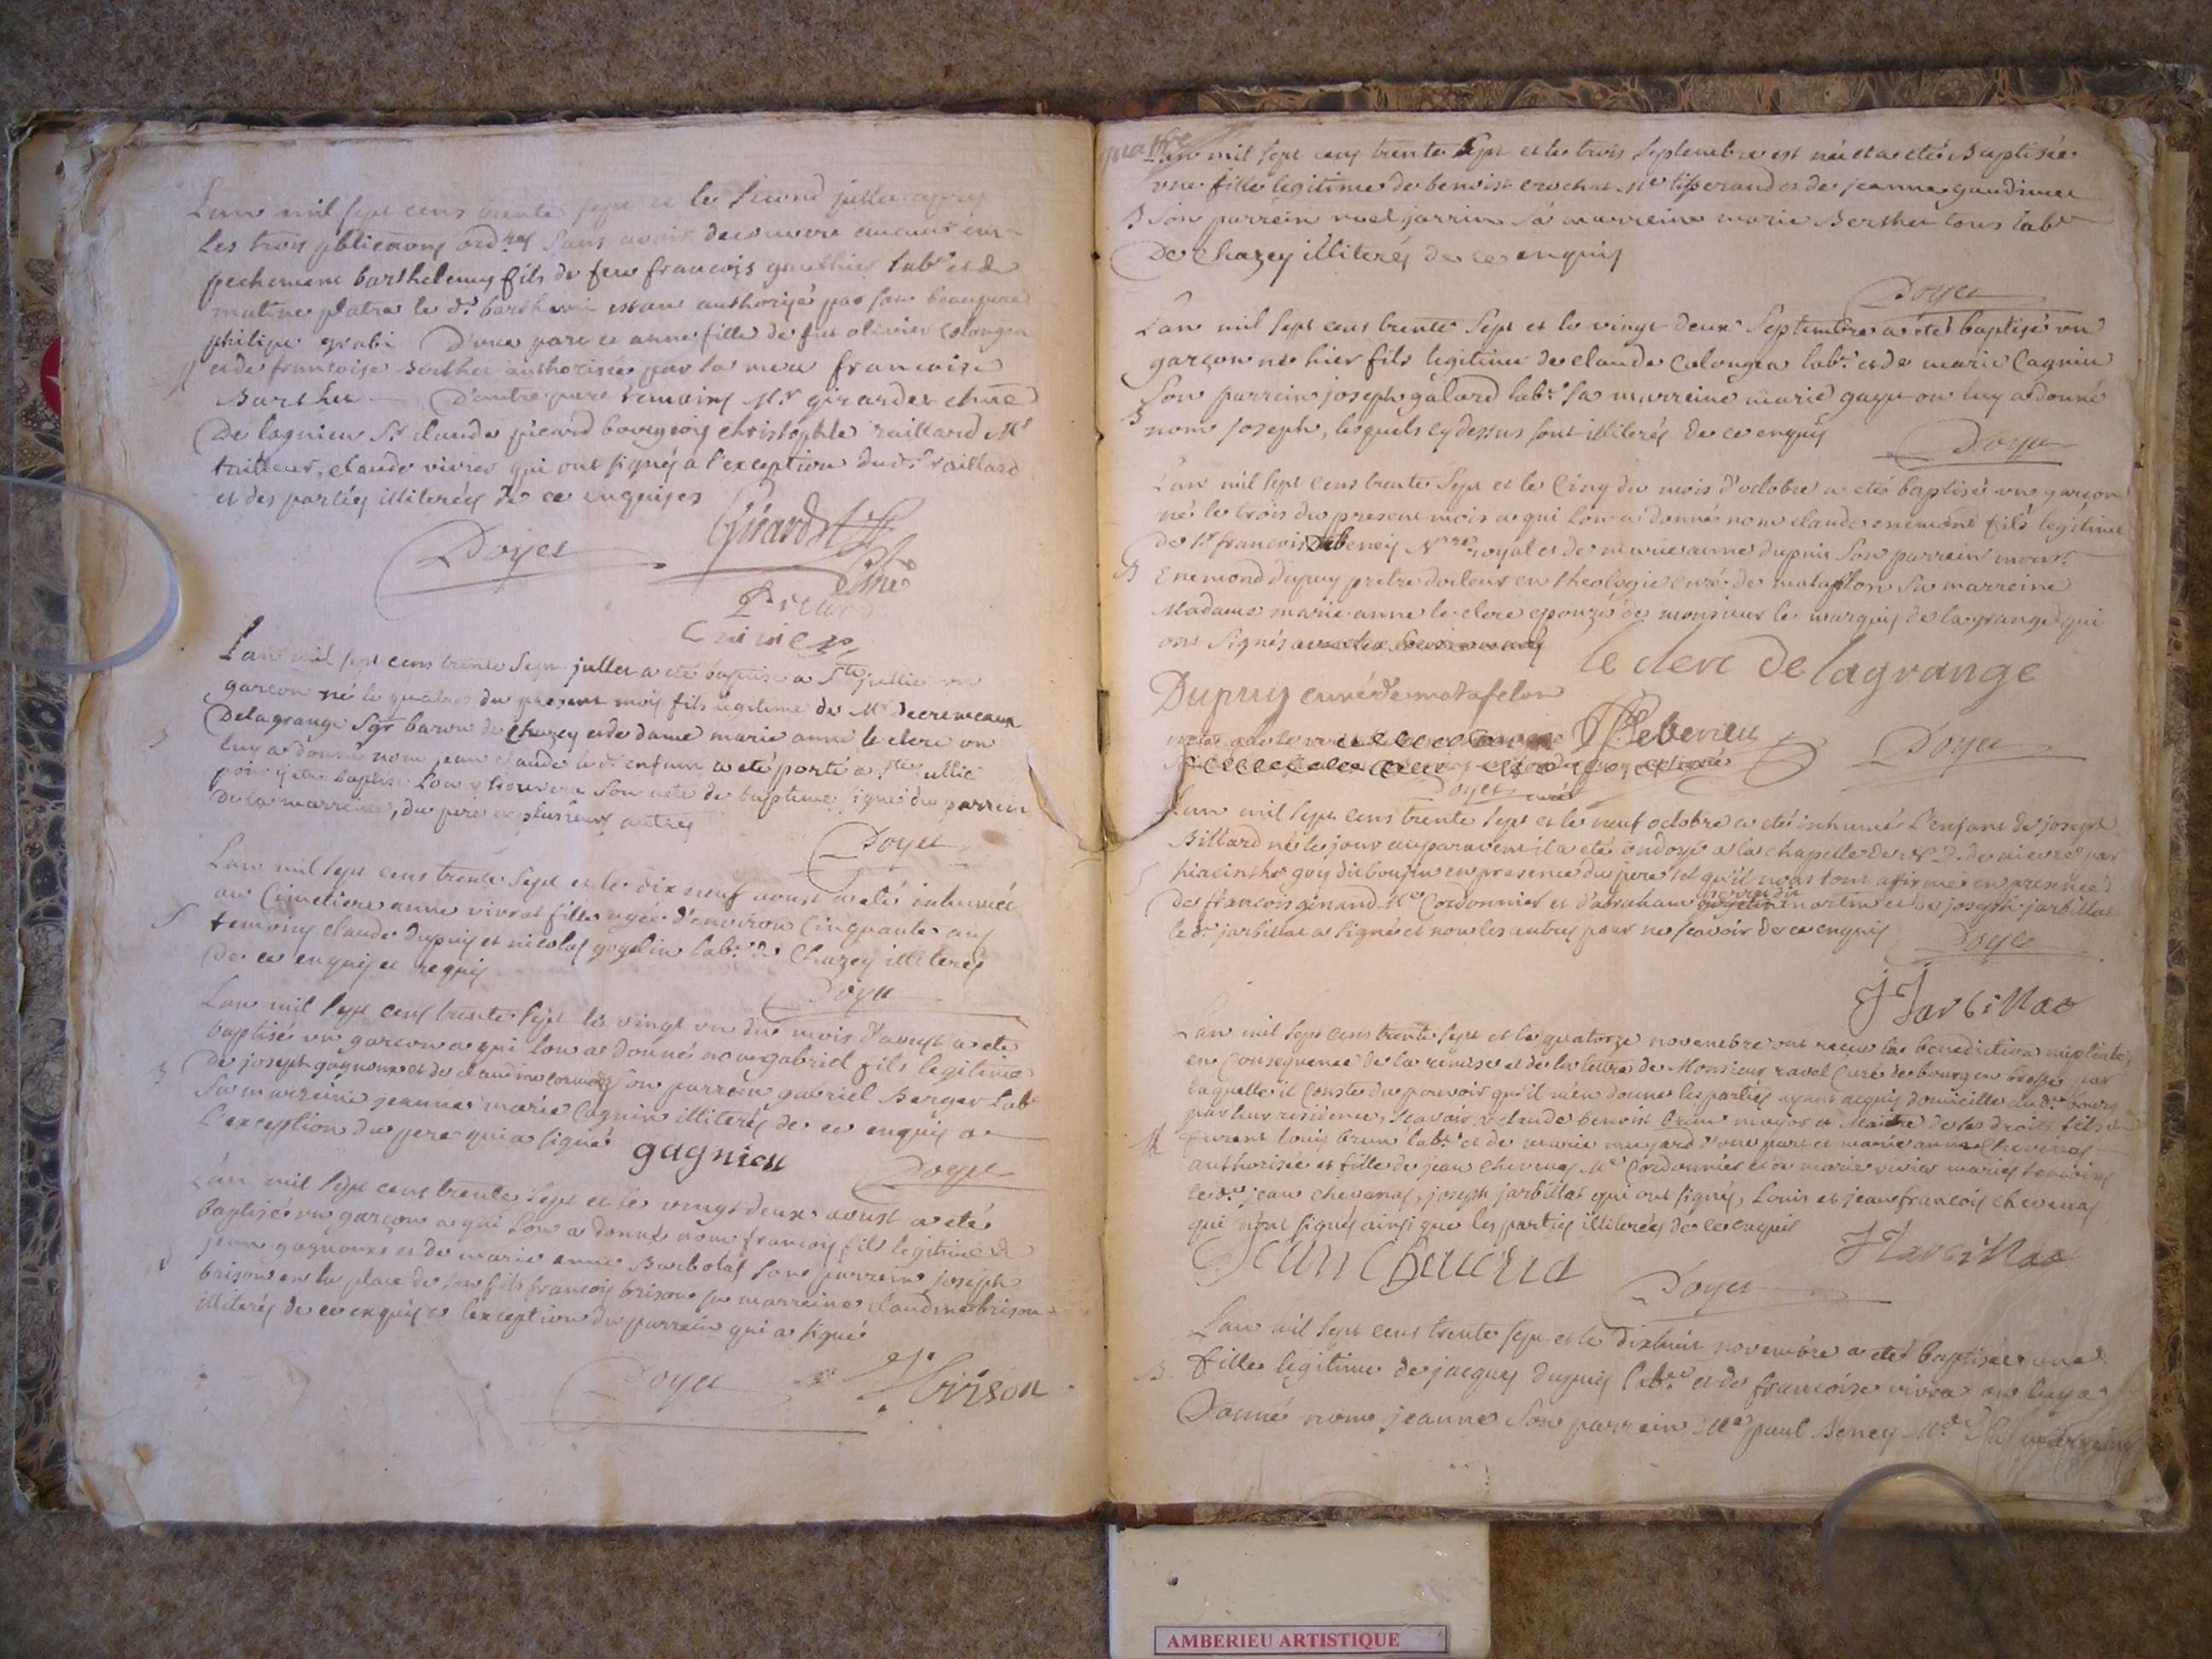 Lan mil sept cens trente sept et le second juillet apres
les trois publicaons ordres sans avoir decouvert aucun em-
pechement barthelemy fils de feu francois gauthier labr et de
le dt estant authorizé par son beaupere
philipe d'une part et anne fille de feu olivier Colongea
M et de francoise Berthet authorisée par sa mere francoise
Berthet D'autre part temoins Mr girardet chne
De lagnieu Sr claude picard bourgeois christophle raillard Me
tailleur, claude vivier qui ont signés a l'exception du dt raillard
et des parties illiterées de ce enquises
Doyet Girardet
Chne
Picard
C vivier
L'an mil sept cens trente sept juillet a eté baptisé a Ste jullie un
garcon né le quatre du present mois fils legitime de Mr
Delagrange Sgr baron de Chazey et de dame marie anne le clerc on
B luy a donné nom jean claude le dt enfant a eté porté a Ste jullie
pour y etre baptisé Lon y trouvera son acte de bapteme signé du parrein
De la marreine, du pere et plusieurs autres
Doyet
Lan mil sept cens trente sept et le dix neuf aoust a eté inhumée
au Cimetiere anne vivrat fille agée d'environ Cinquante ans
S temoins claude dupuis et nicolas goyelin labrs de Chazey illiterés
de ce enquis et requis
Doyet
Lan mil sept cens trente sept le vingt un du mois d'aoust a eté
baptisé un garcon a qui lon a donné nom gabriel fils legitime
B de joseph et de claudine son parrein gabriel Berger labr
Sa marreine jeanne marie Cagnin illiterés de ce enquis a
l'exception du pere qui a signé
gagnieu Doyet
Lan mil sept cens trente sept et le vingt deux aoust a eté
baptisé un garcon a qui lon a donné nom francois fils legitime de
jean et de marie anne Barbolat son parrein joseph
brison en la place de son fils francois brison sa marreine claudine brison
illiterés de ce enquis a l'exception du parrein qui a signé
Doyet J brison
quatre
Lan mil sept cens trente sept et le trois septembre est née et a eté Baptisée
une fille legitime de benoist crochat Me tisserand et de jeanne
B Son parrein noel jarrin sa marreine marie Berthet tous labrs
De Chazey illiterés de ce enquis
Doyet
Lan mil sept cens trente sept et le vingt deux Septembre a eté baptisé un
garçon né hier fils legitime de claude Colongea labr et de marie Cagnin
Son parrein joseph galard labr sa marreine marie on luy a donné
B nom joseph, lesquels cy dessus sont illiterés de ce enquis
Doyet
Lan mil sept cens trente Sept et le Cinq du mois d'octobre a eté baptisé un garçon
né le trois du present mois a qui lon a donné nom claude enemond fils legitime
de Sr francois Debeney Nre royal et de marieanne dupuis Son parrein monsr
B Enemond dupuy pretre docteur en theologie curé de matafelon sa marreine
Madame marie anne le clerc epouze de monsieur le marquis de lagrange qui
ont Signés
le clerc De lagrange
Dupuy curé de matafelon
Debeney Doyet
Doyet curé
Lan mil sept cens trente sept et le neuf octobre a eté inhumé l'enfant de joseph
Billard né le jour auparavent il a eté ondoyé a la chapelle de N D. de nievre par
S hiacinthe goy en presence du pere et qu'il nous tous afirmé en presence
de francois ginand Me Cordonnier et d'abraham martin et de joseph jarbillat
le dt jarbillat a signé et non les autres pour ne scavoir de ce enquis
Doyet
J Jarbillat
Lan mil sept cens trente sept et le quatorze novembre ont receu la benediction nuptiale,
en Consequence de la remise et de la lettre de Monsieur ravel Curé de bourg en bresse par
laquelle il Conste du pouvoir qu'il m'en donne les parties ayant acquis domicille au dt bourg
par leur residence, scavoir claude benoist brun majeur et Maitre de ses droits fils a
M louis brun labr et de marie d'une part et marie anne Chevenas
authorisée et fille de jean chevenas Me Cordonnier et de marie vivier mariés temoins
le dt jean chevenas, joseph jarbillat qui ont signés, Louis et jean francois chevenas
qui n'ont signés ainsi que les parties illiterées de ce enquis
J Jarbillat
Doyet
Lan mil sept cens trente sept et le dixhuit novembre a eté baptisée une
B fille legitime de jacques dupuis labr et de francoise vivra on luy a
Donné nom jeanne Son parrein Me paul Beney
AMBERIEU ARTISTIQUE